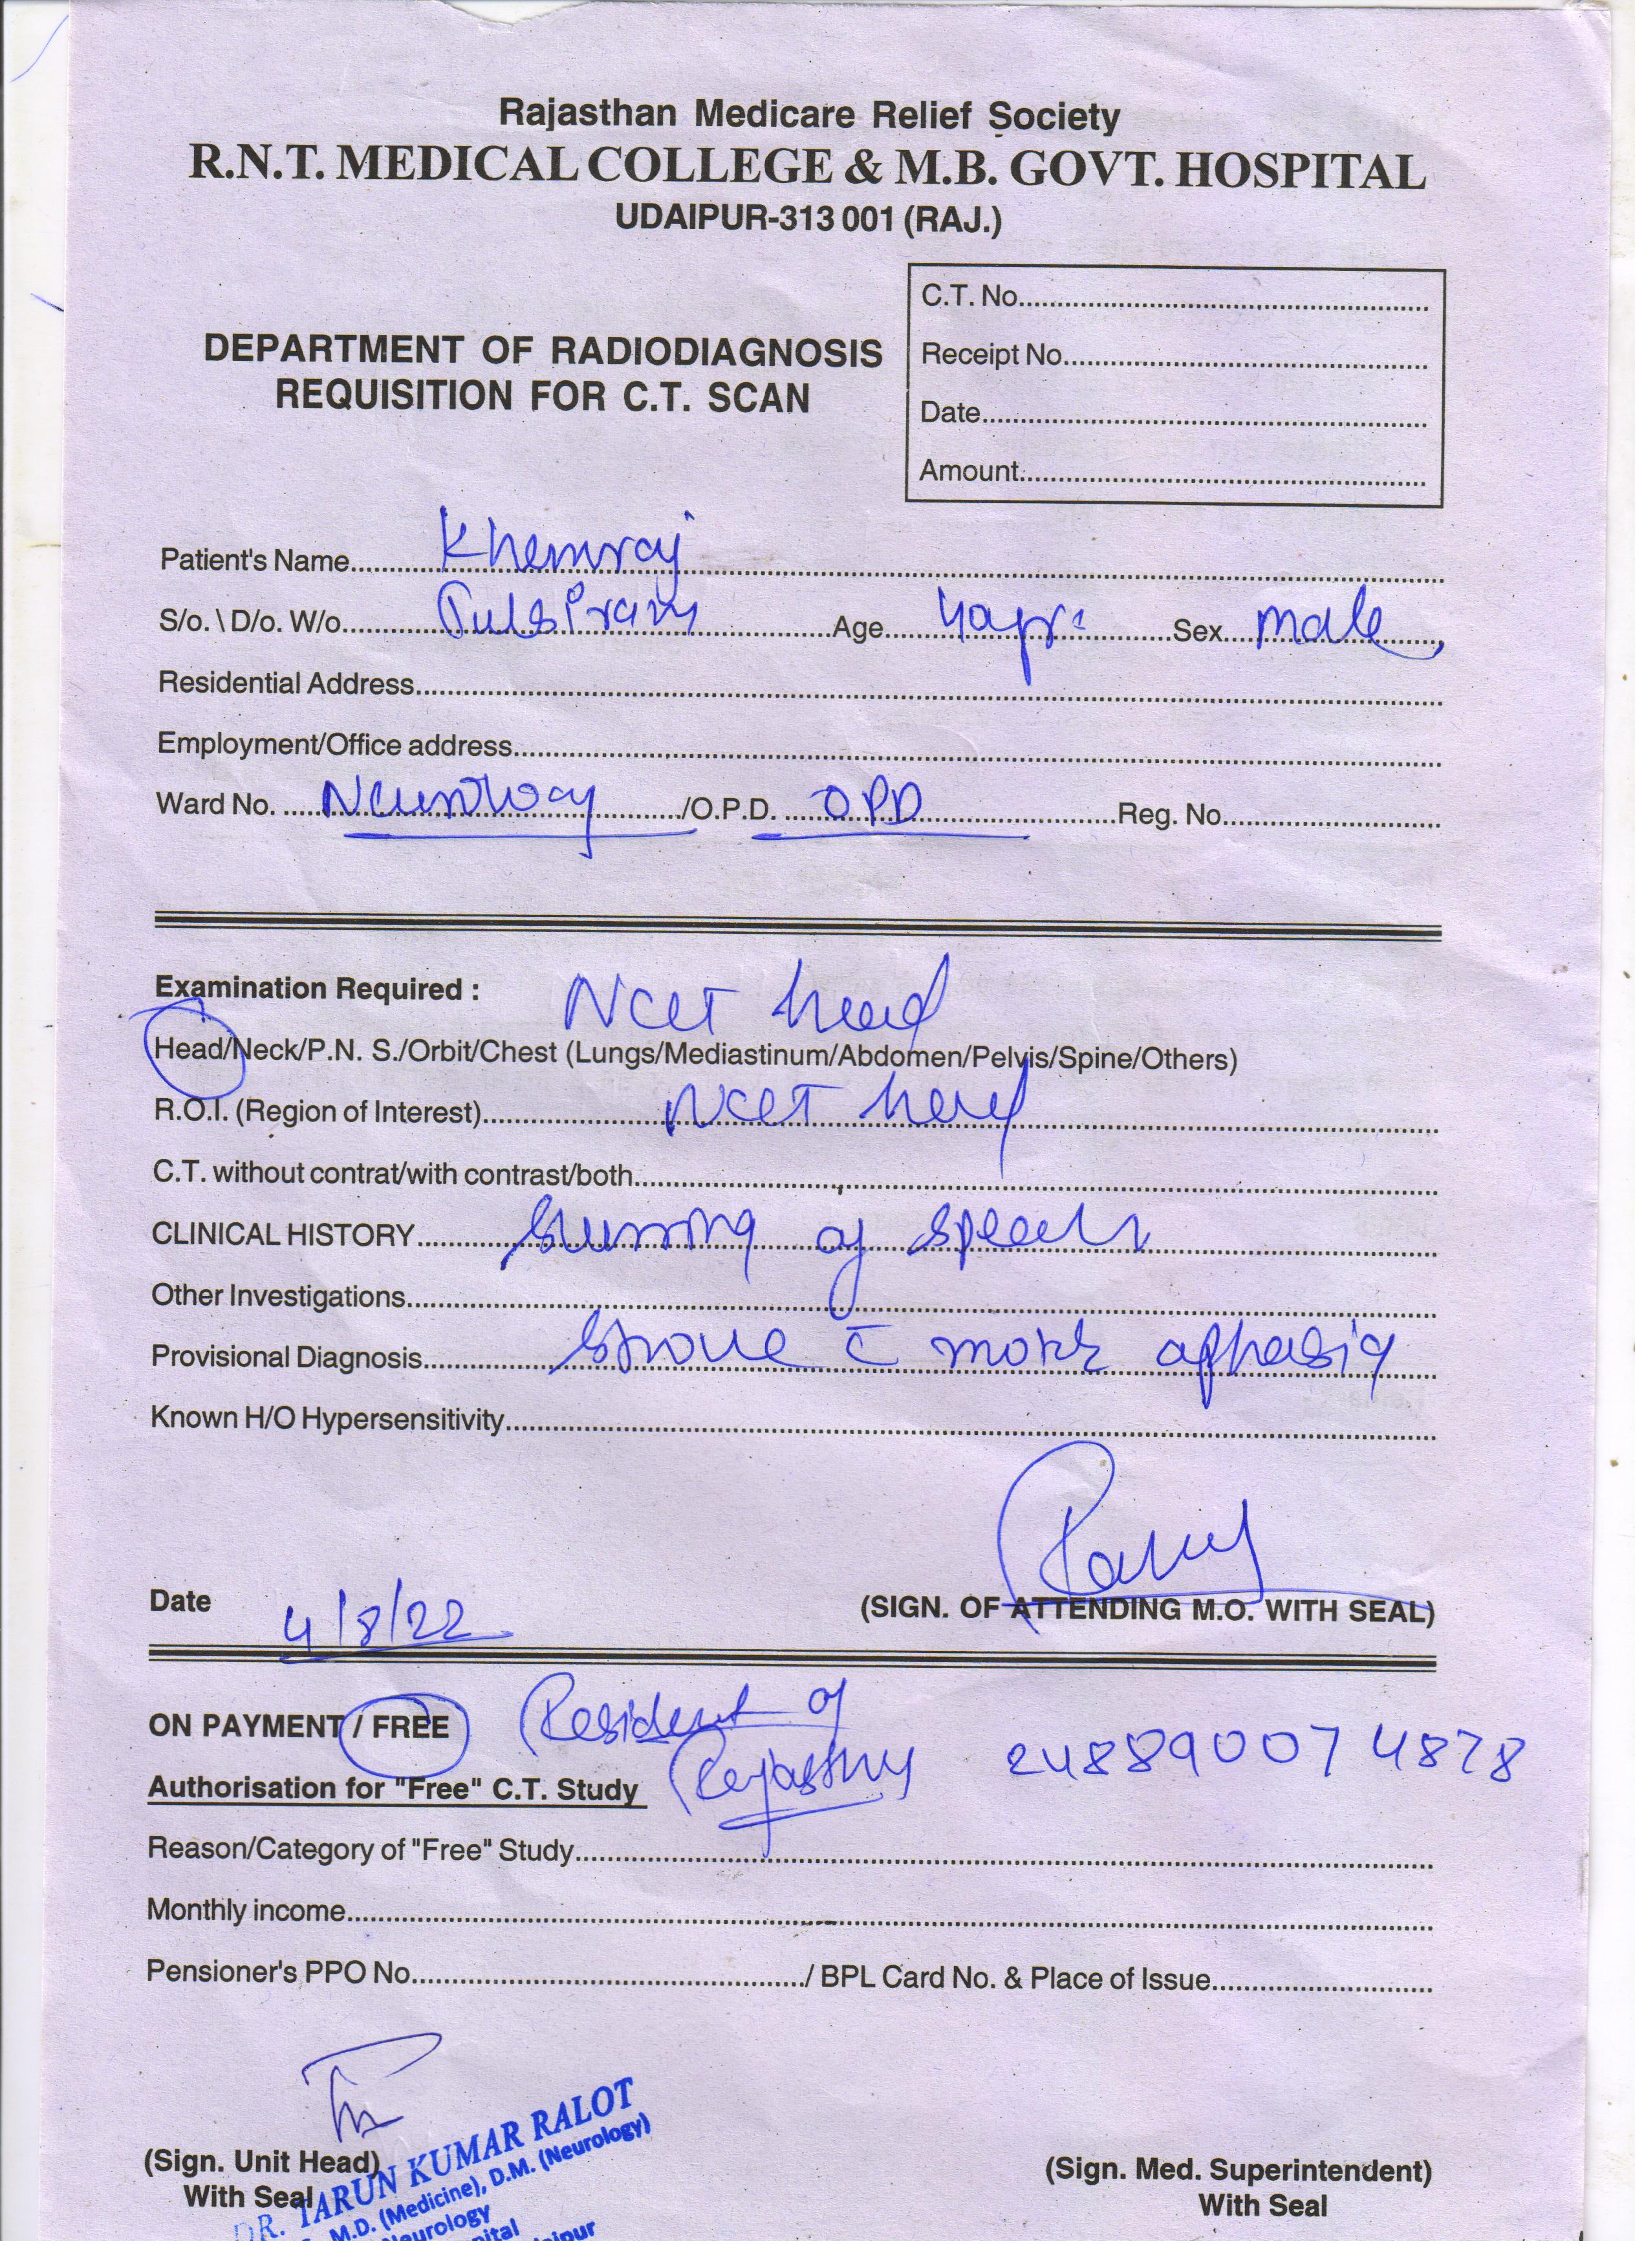 Rajasthan Medicare Relief Society
R.N.T. MEDICAL COLLEGE & M.B. GOVT. HOSPITAL
UDAIPUR-313 001 (RAJ.)
C.T. No.
Receipt No.
Date
Amount
DEPARTMENT OF RADIODIAGNOSIS
REQUISITION FOR C.T. SCAN
Patient's Name Khemraj
S/o. \ D/o. W/o Tulsiram Age Sex male
Residential Address
Employment/Office address
Ward No. Neurology /O.P.D. OPD Reg. No
Examination Required : NCCT head
Head/Neck/P.N. S./Orbit/Chest (Lungs/Mediastinum/Abdomen/Pelvis/Spine/Others)
R.O.I. (Region of Interest) NCCT head
C.T. without contrat/with contrast/both
CLINICAL HISTORY slurring of speech
Other Investigations
Provisional Diagnosis stroke c̄ motor aphasia
Known H/O Hypersensitivity
Date 4/8/22
(SIGN. OF ATTENDING M.O. WITH SEAL)
ON PAYMENT / FREE Resident of
Authorisation for "Free" C.T. Study Rajasthan
Reason/Category of "Free" Study
Monthly income
Pensioner's PPO No / BPL Card No. & Place of Issue
(Sign. Unit Head)
With Seal
DR. TARUN KUMAR RALOT
M.D. (Medicine), D.M. (Neurology)
(Sign. Med. Superintendent)
With Seal